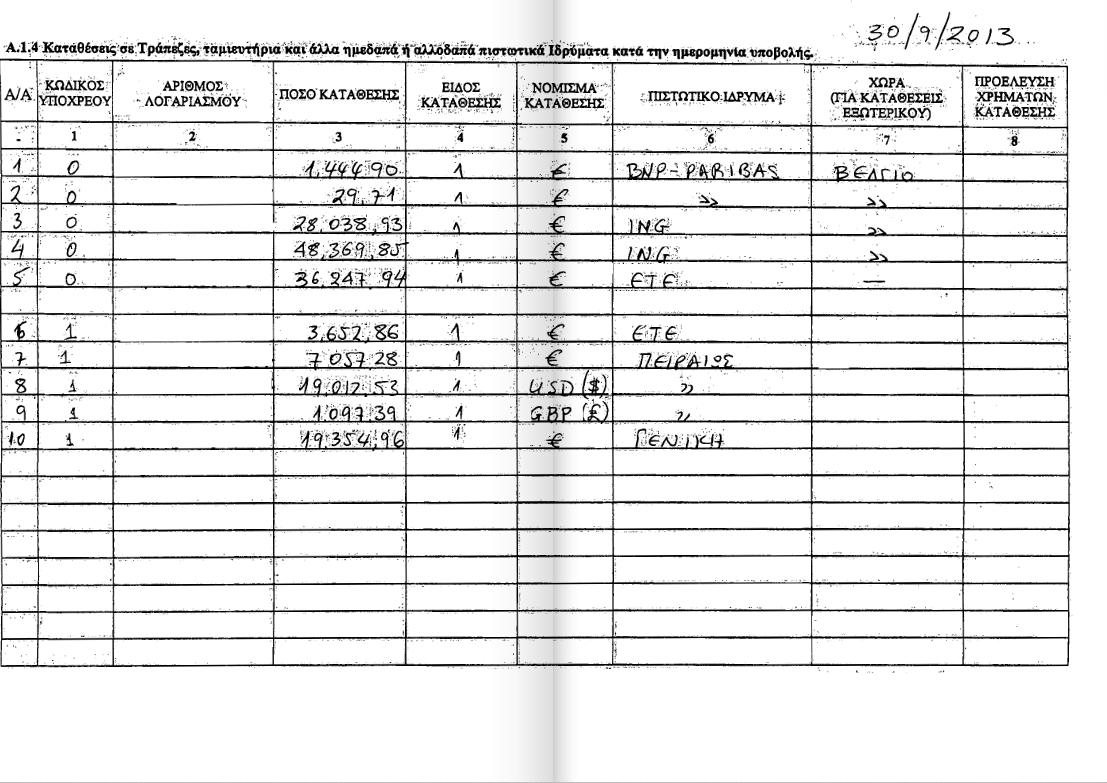 30/9/2013
Α.1.4 Καταθέσεις σε Τράπεζες, ταμιευτήρια και άλλα ημεδαπά ή αλλοδαπά πιστωτικά Ιδρύματα κατά την ημερομηνία υποβολής.
Α/Α ΚΩΔΙΚΟΣ ΥΠΟΧΡΕΟΥ ΑΡΙΘΜΟΣ ΛΟΓΑΡΙΑΣΜΟΥ ΠΟΣΟ ΚΑΤΑΘΕΣΗΣ ΕΙΔΟΣ ΚΑΤΑΘΕΣΗΣ ΝΟΜΙΣΜΑ ΚΑΤΑΘΕΣΗΣ ΠΙΣΤΩΤΙΚΟ ΙΔΡΥΜΑ ΧΩΡΑ (ΓΙΑ ΚΑΤΑΘΕΣΕΙΣ ΕΞΩΤΕΡΙΚΟΥ) ΠΡΟΕΛΕΥΣΗ ΧΡΗΜΑΤΩΝ ΚΑΤΑΘΕΣΗΣ
- 1 2 3 4 5 6 7 8
1 0 1.444,90 1 € BNP-PARIBAS ΒΕΛΓΙΟ
2 0 29,71 1 € >> >>
3 0 28.038,93 1 € ING >>
4 0 48.369,85 1 € ING >>
5 0 36.247,94 1 € ΕΤΕ —
6 1 3.652,86 1 € ΕΤΕ
7 1 7.057,28 1 € ΠΕΙΡΑΙΩΣ
8 1 19.012,53 1 USD ($) >>
9 1 1.097,39 1 GBP (£) >>
10 1 19.354,96 1 € ΓΕΝΙΚΗ